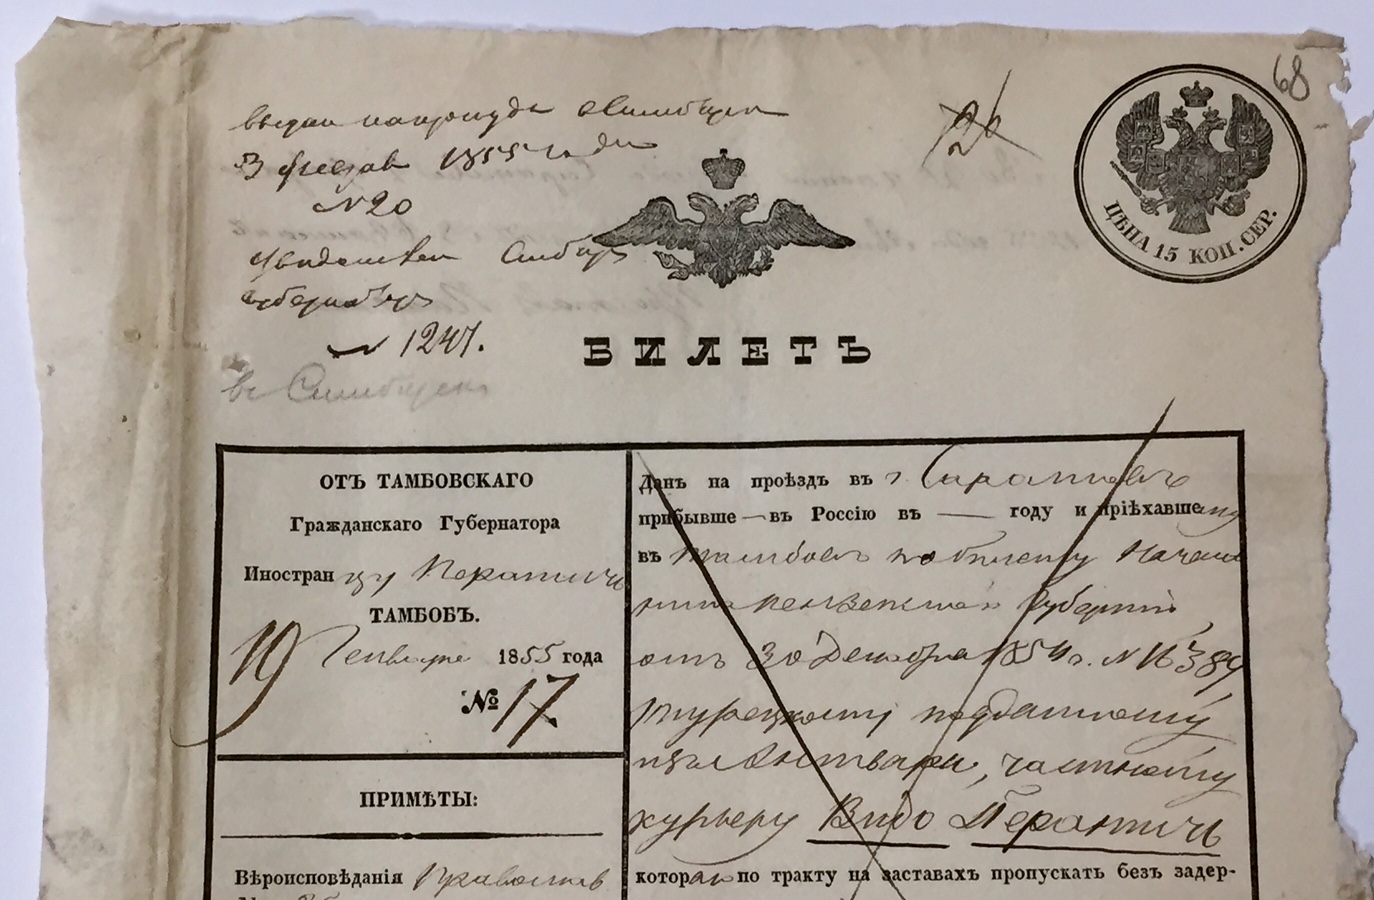 68
26
3 1855 года
№ 20
Симбир
губернатор
№ 1247.
в Симбирск
ЦѢНА 15 КОП. СЕР.
БИЛЕТЪ
ОТЪ ТАМБОВСКАГО
Гражданскаго Губернатора
Иностранцу Ператичь
ТАМБОВЪ.
19 Генваря 1855 года
№ 17
ПРИМѢТЫ:
Вѣроисповѣданія Православ
Данъ на проѣздъ въ г. Саратовъ
прибывше — въ Россію въ — году и пріѣхавшему
въ Тамбовъ по билету Началь
ника Пензенской Губерніи
отъ 30 Декабря 1854 г. № 16384,
турецкому подданному
изъ Антвари, частному
курьеру Видо Ператичь
котораго по тракту на заставахъ пропускать безъ задер-